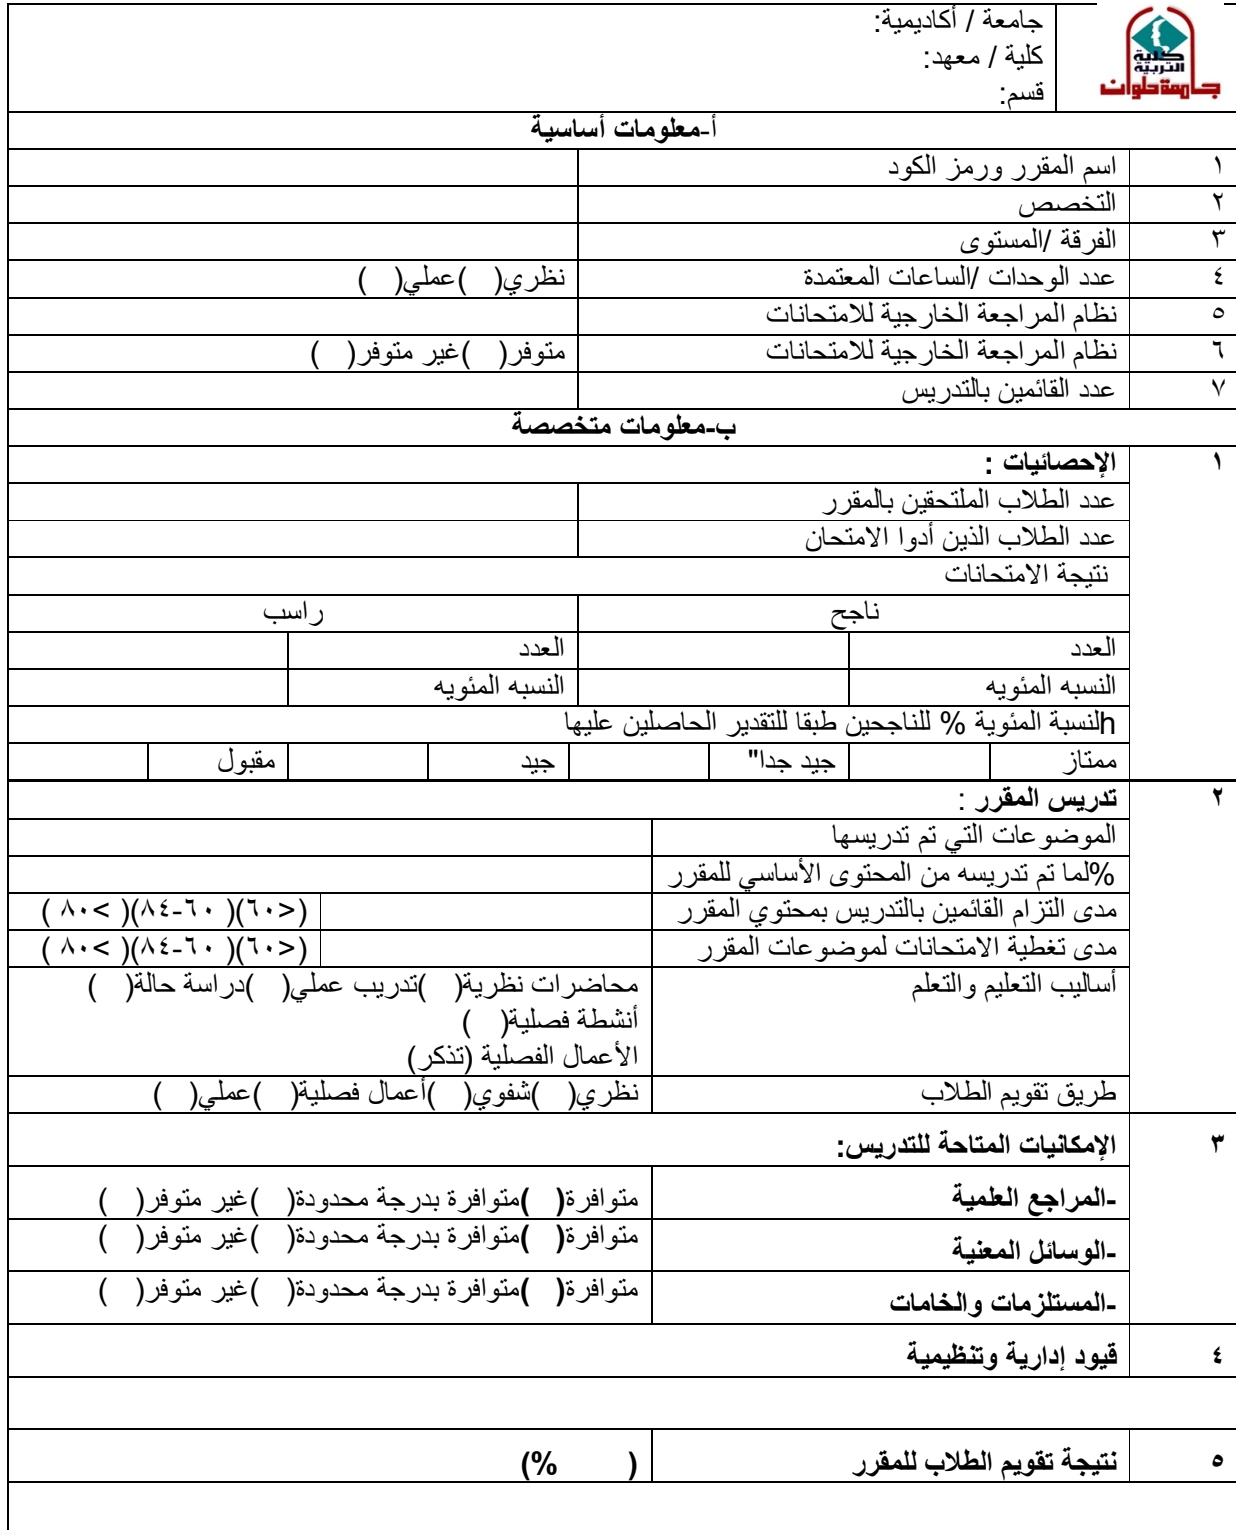 كلية
التربية
جامعة حلوان
جامعة / أكاديمية:
كلية / معهد:
قسم:
أ-معلومات أساسية
١ اسم المقرر ورمز الكود
٢ التخصص
٣ الفرقة /المستوى
٤ عدد الوحدات /الساعات المعتمدة نظري( )عملي( )
٥ نظام المراجعة الخارجية للامتحانات
٦ نظام المراجعة الخارجية للامتحانات متوفر( )غير متوفر( )
٧ عدد القائمين بالتدريس
ب-معلومات متخصصة
١ الإحصائيات :
عدد الطلاب الملتحقين بالمقرر
عدد الطلاب الذين أدوا الامتحان
نتيجة الامتحانات
ناجح راسب
العدد العدد
النسبه المئويه النسبه المئويه
hلنسبة المئوية % للناجحين طبقا للتقدير الحاصلين عليها
ممتاز جيد جدا" جيد مقبول
٢ تدريس المقرر :
الموضوعات التي تم تدريسها
%لما تم تدريسه من المحتوى الأساسي للمقرر
مدى التزام القائمين بالتدريس بمحتوي المقرر (<٦٠)( ٦٠-٨٤)( >٨٠ )
مدى تغطية الامتحانات لموضوعات المقرر (<٦٠)( ٦٠-٨٤)( >٨٠ )
أساليب التعليم والتعلم محاضرات نظرية( )تدريب عملي( )دراسة حالة( )
أنشطة فصلية( )
الأعمال الفصلية (تذكر)
طريق تقويم الطلاب نظري( )شفوي( )أعمال فصلية( )عملي( )
٣ الإمكانيات المتاحة للتدريس:
-المراجع العلمية متوافرة( )متوافرة بدرجة محدودة( )غير متوفر( )
-الوسائل المعنية متوافرة( )متوافرة بدرجة محدودة( )غير متوفر( )
-المستلزمات والخامات متوافرة( )متوافرة بدرجة محدودة( )غير متوفر( )
٤ قيود إدارية وتنظيمية
٥ نتيجة تقويم الطلاب للمقرر ( %)